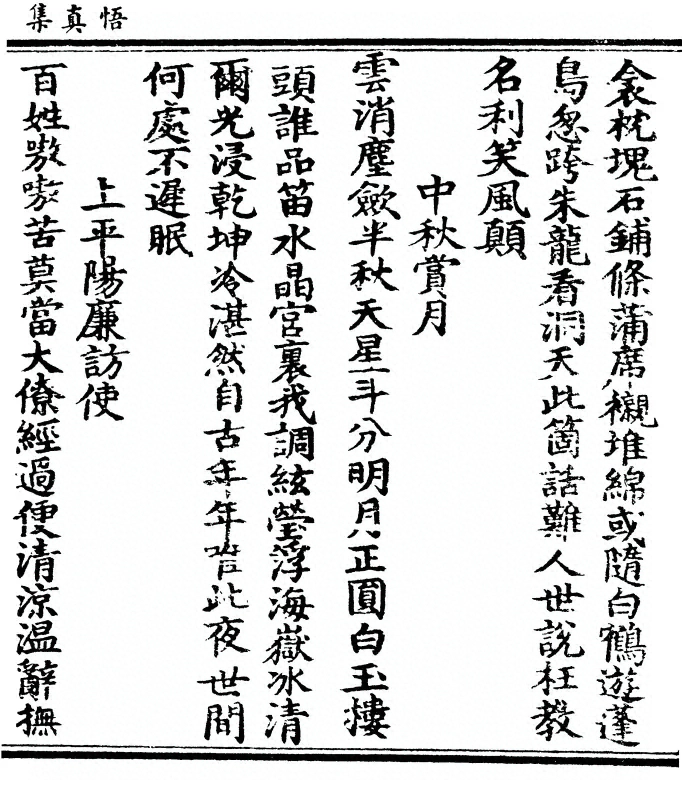 悟真集
衾枕塊石鋪條蒲席襯堆綿或隨白鶴遊蓬
島忽跨朱龍看洞天此箇話難人世說枉教
名利笑風顛
中秋賞月
雲消塵歛半秋天星斗分明月正圓白玉樓
頭誰品笛水晶宮裏我調絃瑩浮海嶽冰清
爾光浸乾坤冷湛然自古年年皆此夜世間
何處不遲眠
上平陽廉訪使
百姓嗷嗷苦莫當大僚經過便清涼温辭撫